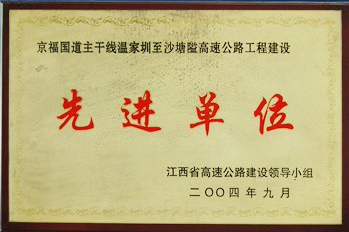 京福国道主干线温家圳至沙塘隘高速公路工程建设
先进单位
江西省高速公路建设领导小组
二〇〇四年九月